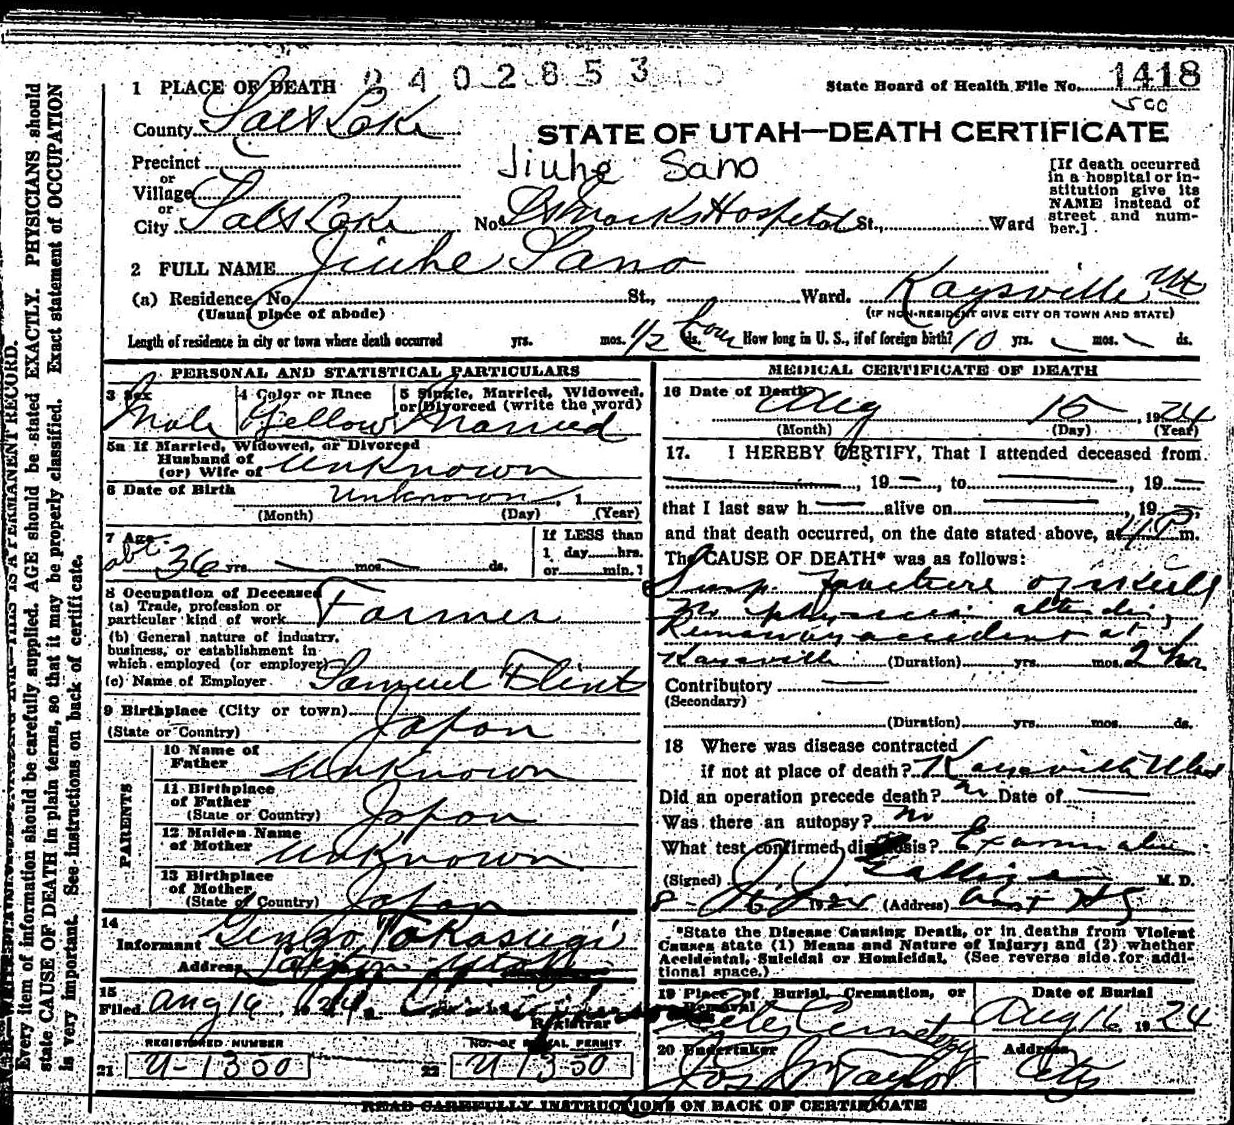 2402853
State Board of Health File No. 1418
1 PLACE OF DEATH
County Salt Lake
STATE OF UTAH—DEATH CERTIFICATE
Precinct
or
Village
or
City Salt Lake
Jiuhe Sano
[If death occurred
in a hospital or in-
stitution give its
NAME instead of
street and num-
ber.]
No. St Marks Hospital St., Ward
2 FULL NAME Jiuhe Sano
(a) Residence, No. St., Ward. Kaysville, Ut
(Usual place of abode)
(IF NON-RESIDENT GIVE CITY OR TOWN AND STATE)
Length of residence in city or town where death occurred yrs. mos. 1/2 ds. hour How long in U. S., if of foreign birth? 10 yrs. mos. ds.
PERSONAL AND STATISTICAL PARTICULARS
3 Sex
Male
4 Color or Race
Yellow
5 Single, Married, Widowed,
or Divorced (write the word)
Married
5a If Married, Widowed, or Divorced
Husband of
(or) Wife of Unknown
6 Date of Birth
Unknown, 1
(Month) (Day) (Year)
7 Age
abt 36 yrs. mos. ds.
If LESS than
1 day hrs.
or min.
8 Occupation of Deceased
(a) Trade, profession or
particular kind of work Farmer
(b) General nature of industry,
business, or establishment in
which employed (or employer)
(c) Name of Employer Samuel Flint
9 Birthplace (City or town)
(State or Country) Japan
PARENTS
10 Name of
Father Unknown
11 Birthplace
of Father
(State or Country) Japan
12 Maiden Name
of Mother Unknown
13 Birthplace
of Mother
(State or Country) Japan
14
Informant Gengo Takasugi
Address Layton Utah
15
Filed Aug 16, 1924
Registrar
REGISTERED NUMBER
21 U-1300
NO. OF BURIAL PERMIT
22 U 1350
MEDICAL CERTIFICATE OF DEATH
16 Date of Death
Aug 15, 1924
(Month) (Day) (Year)
17. I HEREBY CERTIFY, That I attended deceased from
, 19 , to , 19
that I last saw h alive on , 19
and that death occurred, on the date stated above, at 4 P m.
The CAUSE OF DEATH* was as follows:
fracture of skull
No physician attending
Runaway accident at
Kaysville (Duration) yrs. mos. 2 hr
Contributory
(Secondary)
(Duration) yrs. mos. ds.
18 Where was disease contracted
if not at place of death? Kaysville Utah
Did an operation precede death? no Date of
Was there an autopsy? no
What test confirmed diagnosis? Examination
(Signed) M. D.
1924 (Address)
*State the Disease Causing Death, or in deaths from Violent
Causes state (1) Means and Nature of Injury; and (2) whether
Accidental, Suicidal or Homicidal. (See reverse side for addi-
tional space.)
19 Place of Burial, Cremation, or
Removal
City Cemetery
Date of Burial
Aug 16 1924
20 Undertaker
Jos Wm Taylor
Address
City
READ CAREFULLY INSTRUCTIONS ON BACK OF CERTIFICATE
Every item of information should be carefully supplied. AGE should be stated EXACTLY. PHYSICIANS should
state CAUSE OF DEATH in plain terms, so that it may be properly classified. Exact statement of OCCUPATION
is very important. See instructions on back of certificate.